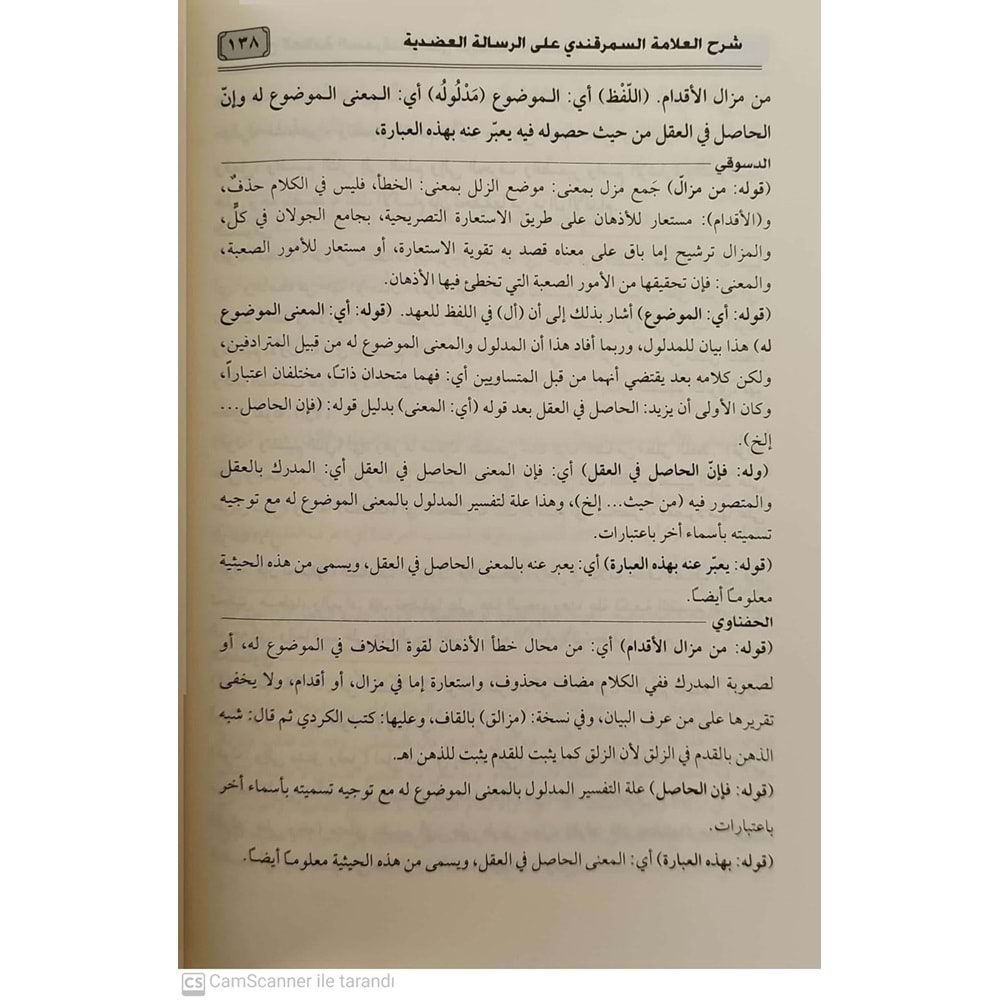 شرح العلامة السمرقندي على الرسالة العضدية
١٣٨
من مزال الأقدام. (اللّفْظ) أي: الموضوع (مَدْلُولُه) أي: المعنى الموضوع له وإنّ
الحاصل في العقل من حيث حصوله فيه يعبّر عنه بهذه العبارة،
الدسوقي
(قوله: من مزالّ) جَمع مزل بمعنى: موضع الزلل بمعنى: الخطأ، فليس في الكلام حذفٌ،
و(الأقدام): مستعار للأذهان على طريق الاستعارة التصريحية، بجامع الجولان في كلٍّ،
والمزال ترشيح إما باق على معناه قصد به تقوية الاستعارة، أو مستعار للأمور الصعبة،
والمعنى: فإن تحقيقها من الأمور الصعبة التي تخطئ فيها الأذهان.
(قوله: أي: الموضوع) أشار بذلك إلى أن (أل) في اللفظ للعهد. (قوله: أي: المعنى الموضوع
له) هذا بيان للمدلول، وربما أفاد هذا أن المدلول والمعنى الموضوع له من قبيل المترادفين،
ولكن كلامه بعد يقتضي أنهما من قبل المتساويين أي: فهما متحدان ذاتـًا، مختلفان اعتباراً،
وكان الأولى أن يزيد: الحاصل في العقل بعد قوله (أي: المعنى) بدليل قوله: (فإن الحاصل...
إلخ).
(وله: فإنّ الحاصل في العقل) أي: فإن المعنى الحاصل في العقل أي: المدرك بالعقل
والمتصور فيه (من حيث... إلخ)، وهذا علة لتفسير المدلول بالمعنى الموضوع له مع توجيه
تسميته بأسماء أخر باعتبارات.
(قوله: يعبّر عنه بهذه العبارة) أي: يعبر عنه بالمعنى الحاصل في العقل، ويسمى من هذه الحيثية
معلومـًا أيضـًا.
الحفناوي
(قوله: من مزال الأقدام) أي: من محال خطأ الأذهان لقوة الخلاف في الموضوع له، أو
لصعوبة المدرك ففي الكلام مضاف محذوف، واستعارة إما في مزال، أو أقدام، ولا يخفى
تقريرها على من عرف البيان، وفي نسخة: (مزالق) بالقاف، وعليها: كتب الكردي ثم قال: شبه
الذهن بالقدم في الزلق لأن الزلق كما يثبت للقدم يثبت للذهن اهـ.
(قوله: فإن الحاصل) علة التفسير المدلول بالمعنى الموضوع له مع توجيه تسميته بأسماء أخر
باعتبارات.
(قوله: بهذه العبارة) أي: المعنى الحاصل في العقل، ويسمى من هذه الحيثية معلومـًا أيضـًا.
CS CamScanner ile tarandı